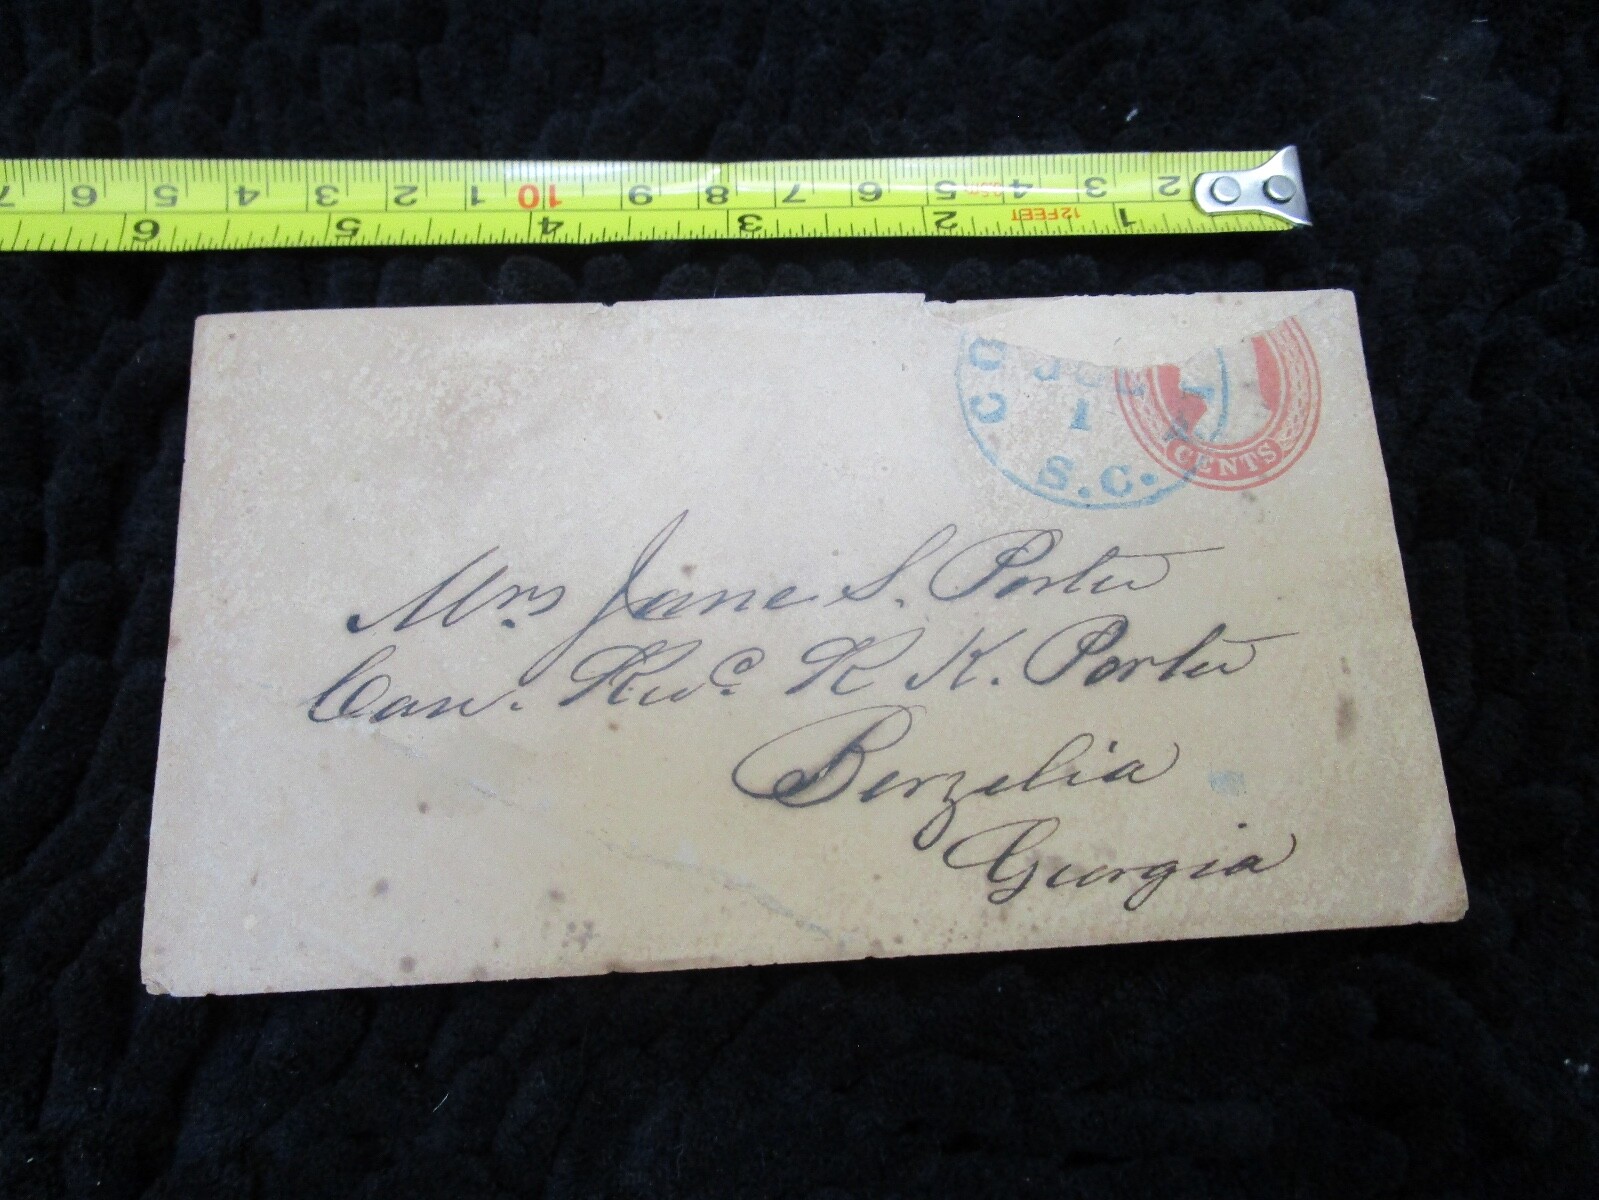 7 6 5 4 3 2 1 10 9 8 7 6 5 4 3 2
6 5 4 3 2 12FEET 1
1
S.C.
CENTS
Mrs. Jane S. Porter
Care. Revd. R K. Porter
Berzelia
Georgia